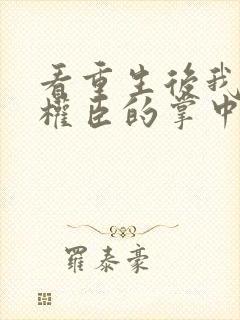 看重生後我
權臣的掌中
羅泰豪